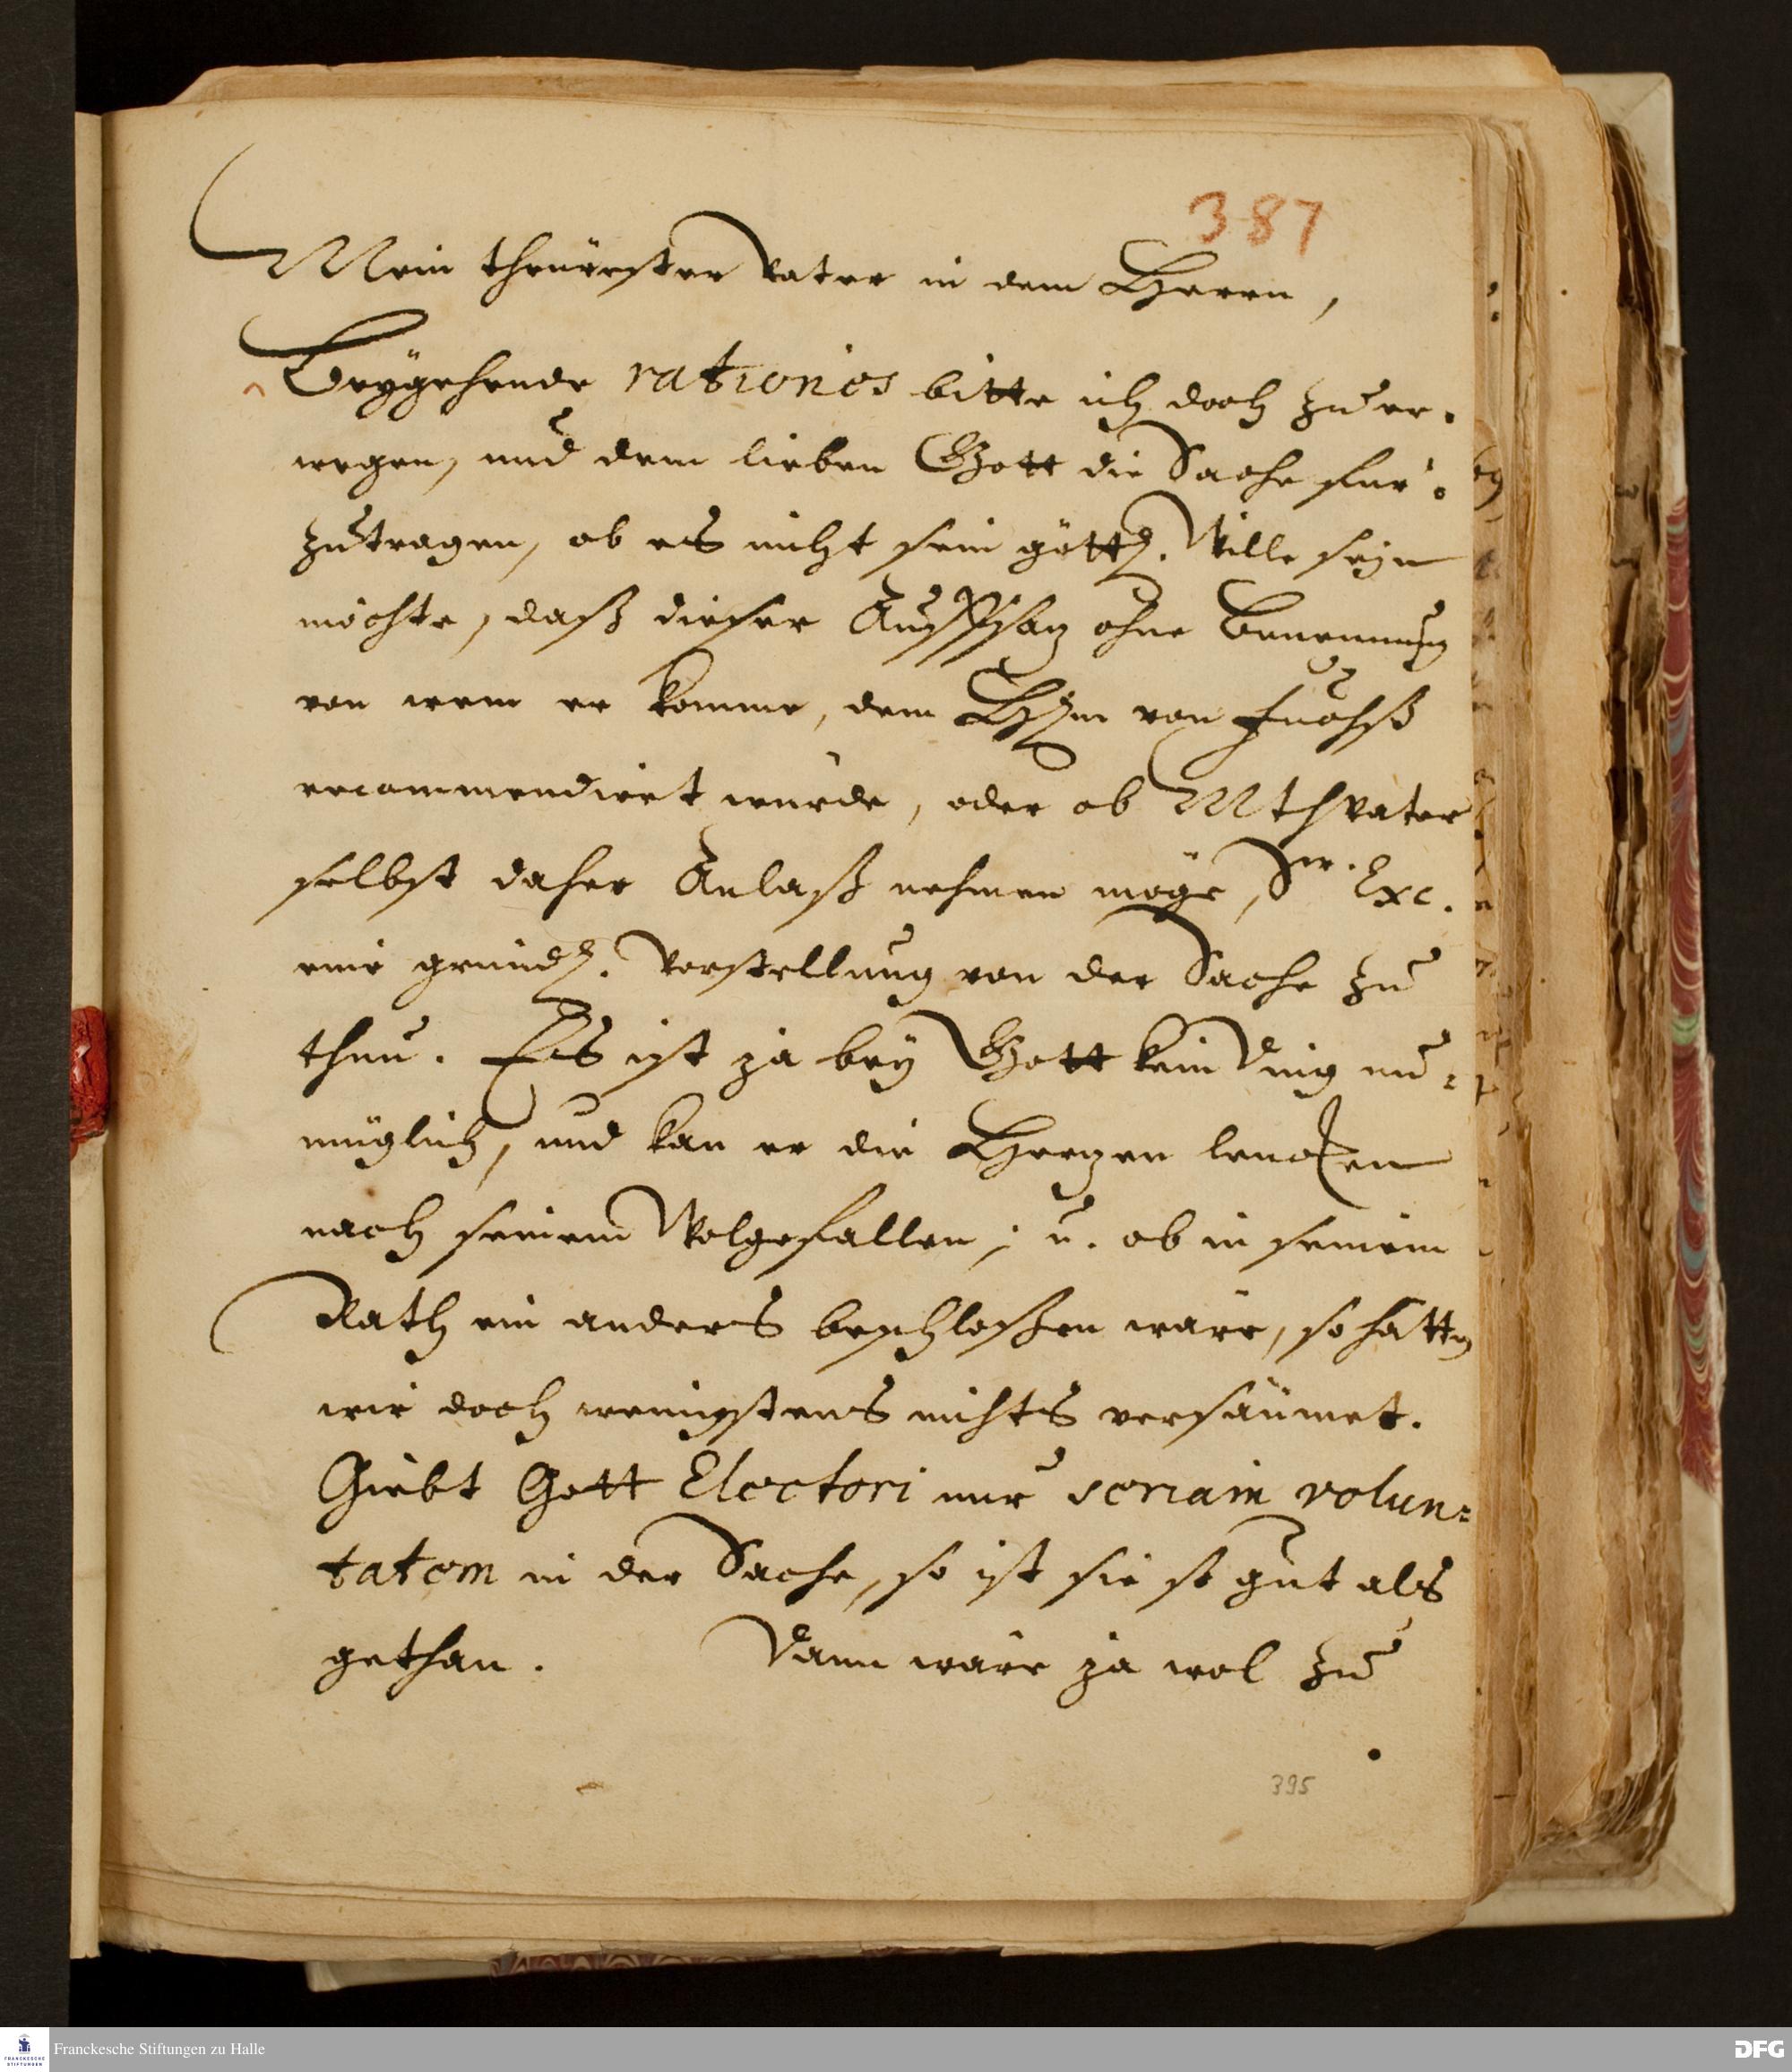 387
Mein theürester Vater in dem Herrn,
Beygehende rationes bitte ich doch zu er-
wegen, und dem lieben Gott die Sache für-
zutragen, ob es nicht sein göttl. Wille seyn
möchte, daß dieser Auffsatz ohne Benennung
von wem er komme, dem Hrn von Fuchß
recommendiret würde, oder ob MthVater
selbst daher Anlaß nehmen möge, Sr. Exc.
eine gründl. Vorstellung von der Sache zu
thun. Es ist ja bey Gott kein Ding un-
müglich, und kan er die Hertzen lencken
nach seinem Wolgefallen; u. ob in seinem
Rath ein anders beschloßen wäre, so hätten
wir doch wenigstens nichts versäumet.
Giebt Gott Electori nur seriam volun=
tatem in der Sache, so ist sie so gut als
gethan. Dann wäre ja wol zu
395
Franckesche Stiftungen zu Halle
FRANCKESCHE STIFTUNGEN
DFG